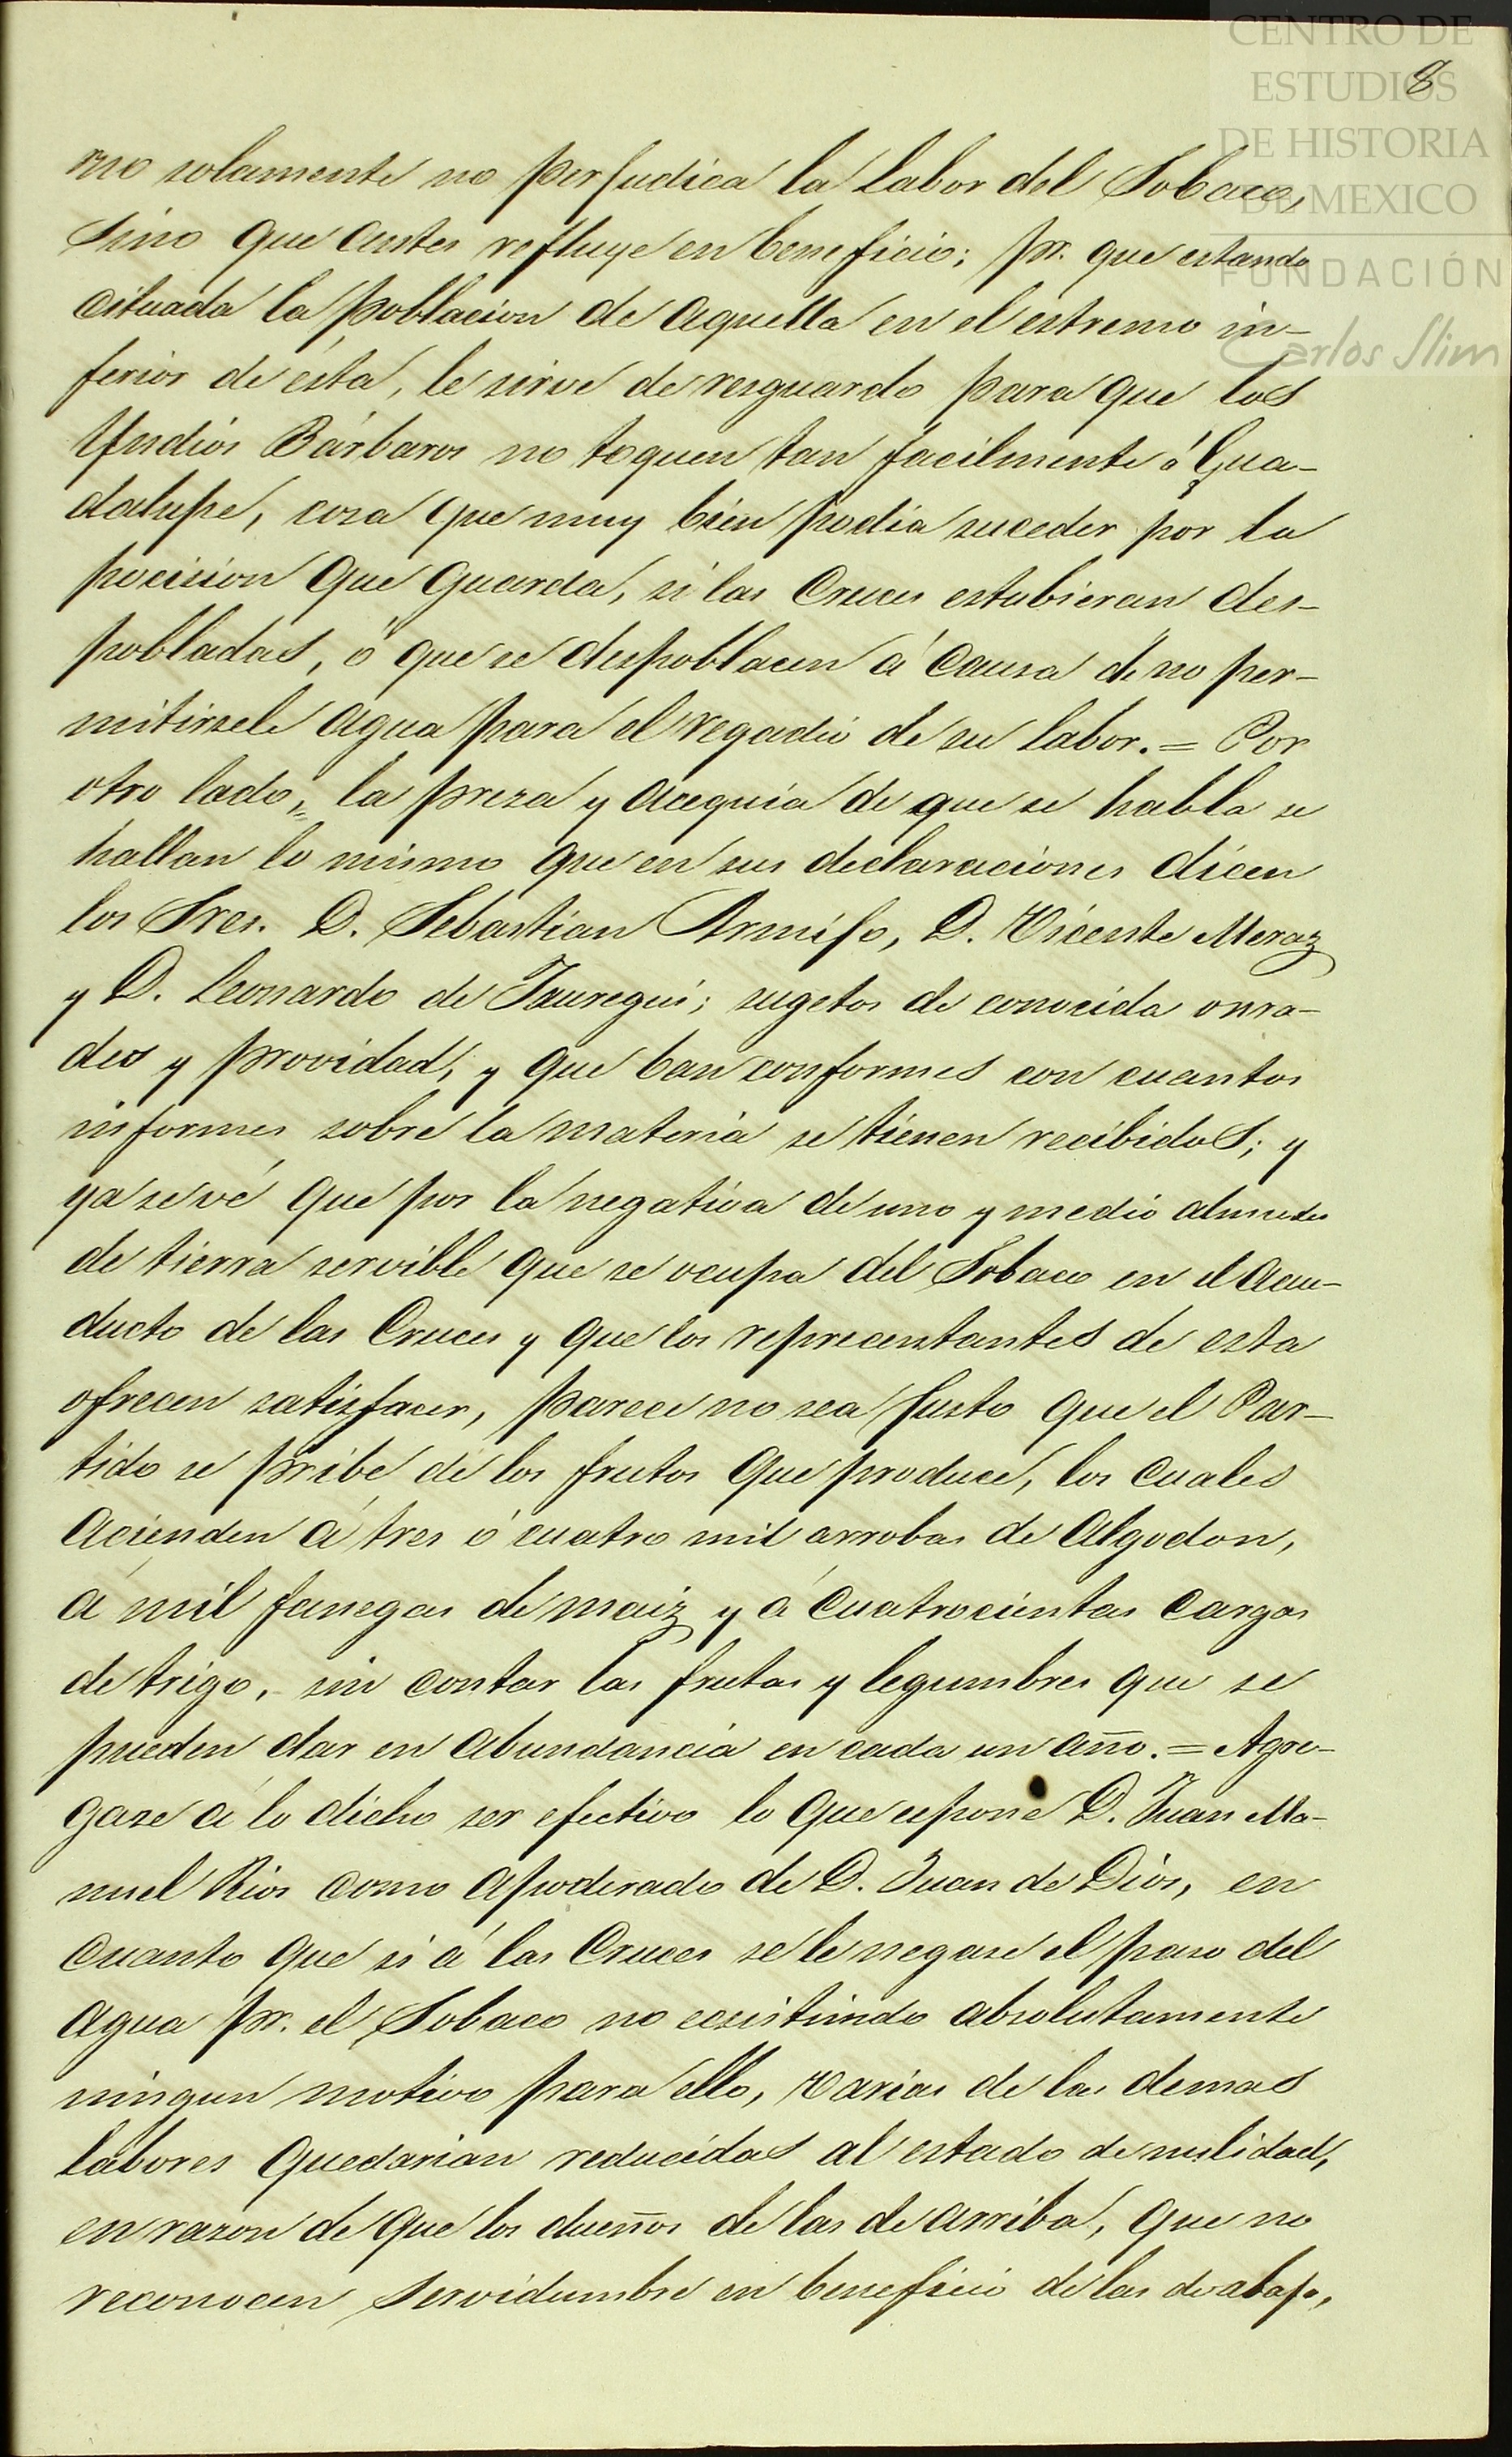 CENTRO DE
ESTUDIOS
DE HISTORIA
DE MEXICO
FUNDACIÓN
Carlos Slim
8
mo solamente no perjudica la labor del Sobaco,
sino que antes refluye en beneficio; pr. que estando
cituada la poblacion de aquella en el estremo in-
ferior de ésta, le sirve de resguardo para que los
Yndios Bárbaros no toquen tan facilmente á Gua-
dalupe, cosa que muy bien podia suceder por la
pocision que guarda, si las Cruces estubieran des-
pobladas, ó que se despoblacen á causa de no per-
mitirsele agua para el regadio de su labor. = Por
otro lado, la preza y acequia de que se habla se
hallan lo mismo que en sus declaraciones dicen
los Sres. D. Sebastian Armijo, D. Vicente Meraz
y D. Leonardo de Jauregui; sugetos de conocida onra-
des y providad, y que ban conformes con cuantos
informes sobre la materia se tienen recibidos; y
ya se vé que por la negativa de uno y medio almudes
de tierra servible que se ocupa del Sobaco en el acue-
ducto de las Cruces y que los reprecentantes de esta
ofrecen satisfacer, parece no sea justo que el Par-
tido se pribe de los frutos que produce, los cuales
acienden á tres ó cuatro mil arrobas de algodon,
á mil fanegas de maiz y á cuatrocientas cargas
de trigo, sin contar las frutas y legumbres que se
pueden dar en abundancia en cada un año. = Agre-
gase á lo dicho ser efectivo lo que espone D. Juan Ma-
nuel Rios como apoderado de D. Juan de Dios, en
cuanto que si á las Cruces se le negase el paso del
agua pr. el Sobaco no ecsistiendo absolutamente
ningun motivo para ello, varias de las demas
labores quedarian reducidas al estado de nulidad,
en razon de que los dueños de las de arriba, que no
reconocen servidumbre en beneficio de las de abajo,